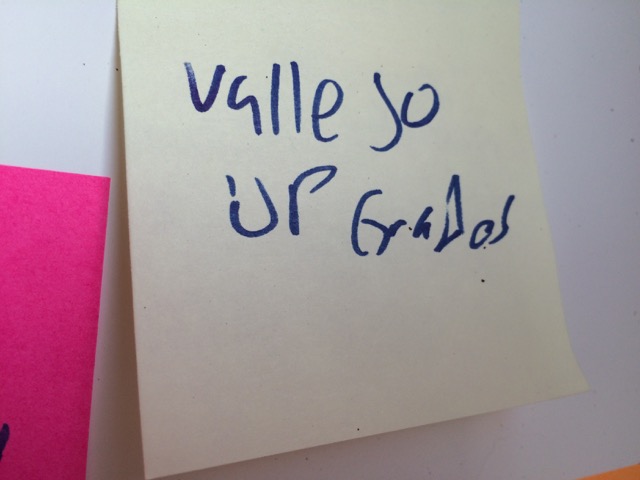 Vallejo
UP Grados